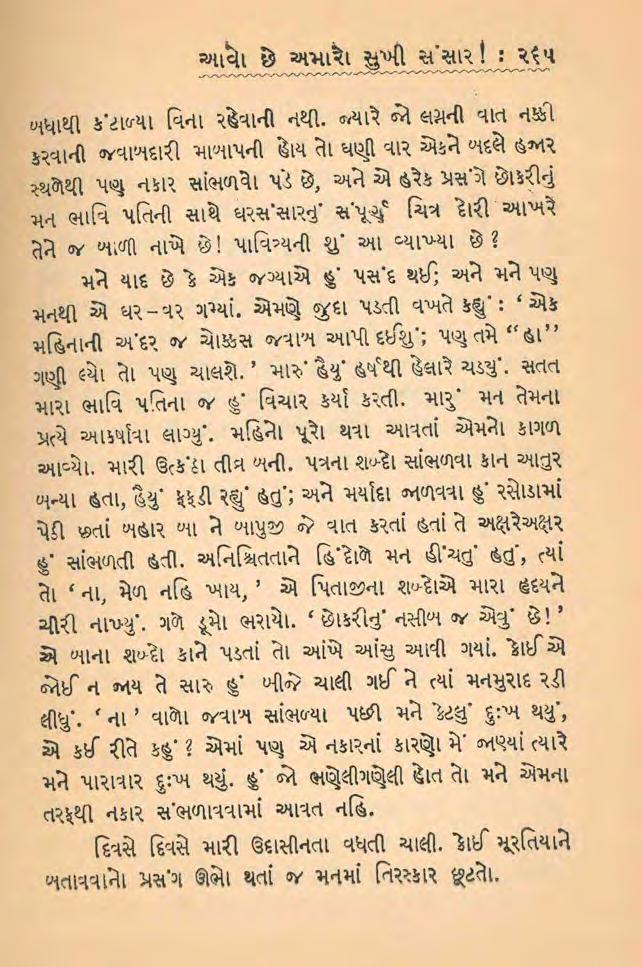 આવો છે અમારો સુખી સંસાર! : ૨૬૫
બધાથી કંટાળ્યા વિના રહેવાની નથી. જ્યારે જો લગ્નની વાત નક્કી
કરવાની જવાબદારી માબાપની હોય તો ઘણી વાર એકને બદલે હજાર
સ્થળેથી પણ નકાર સાંભળવો પડે છે, અને એ હરેક પ્રસંગે છોકરીનું
મન ભાવિ પતિની સાથે ઘરસંસારનું સંપૂર્ણ ચિત્ર દોરી આખરે
તેને જ બાળી નાખે છે! પાવિત્ર્યની શું આ વ્યાખ્યા છે?
મને યાદ છે કે એક જગ્યાએ હું પસંદ થઈ; અને મને પણ
મનથી એ ઘર–વર ગમ્યાં. એમણે જુદા પડતી વખતે કહ્યું : ‘એક
મહિનાની અંદર જ ચોક્કસ જવાબ આપી દઈશું; પણ તમે “હા”
ગણી લ્યો તો પણ ચાલશે.’ મારું હૈયું હર્ષથી હેલારે ચડયું. સતત
મારા ભાવિ પતિના જ હું વિચાર કર્યા કરતી. મારું મન તેમના
પ્રત્યે આકર્ષાવા લાગ્યું. મહિનો પૂરો થવા આવતાં એમનો કાગળ
આવ્યો. મારી ઉત્કંઠા તીવ્ર બની. પત્રના શબ્દો સાંભળવા કાન આતુર
બન્યા હતા, હૈયું ફફડી રહ્યું હતું; અને મર્યાદા જાળવવા હું રસોડામાં
પેઠી છતાં બહાર બા ને બાપુજી જે વાત કરતાં હતાં તે અક્ષરેઅક્ષર
હું સાંભળતી હતી. અનિશ્ચિતતાને હિંદોળે મન હીંચતું હતું, ત્યાં
તો ‘ના, મેળ નહિ ખાય,’ એ પિતાજીના શબ્દોએ મારા હૃદયને
ચીરી નાખ્યું. ગળે ડૂમો ભરાયો. ‘છોકરીનું નસીબ જ એવું છે!’
એ બાના શબ્દો કાને પડતાં તો આંખે આંસુ આવી ગયાં. કોઈ એ
જોઈ ન જાય તે સારુ હું બીજે ચાલી ગઈ ને ત્યાં મનમુરાદ રડી
લીધું. ‘ના’ વાળો જવાબ સાંભળ્યા પછી મને કેટલું દુઃખ થયું,
એ કઈ રીતે કહું? એમાં પણ એ નકારનાં કારણો મેં જાણ્યાં ત્યારે
મને પારાવાર દુઃખ થયું. હું જો ભણેલીગણેલી હોત તો મને એમના
તરફથી નકાર સંભળાવવામાં આવત નહિ.
દિવસે દિવસે મારી ઉદાસીનતા વધતી ચાલી. કોઈ મૂરતિયાને
બતાવવાનો પ્રસંગ ઊભો થતાં જ મનમાં તિરસ્કાર છૂટતો.